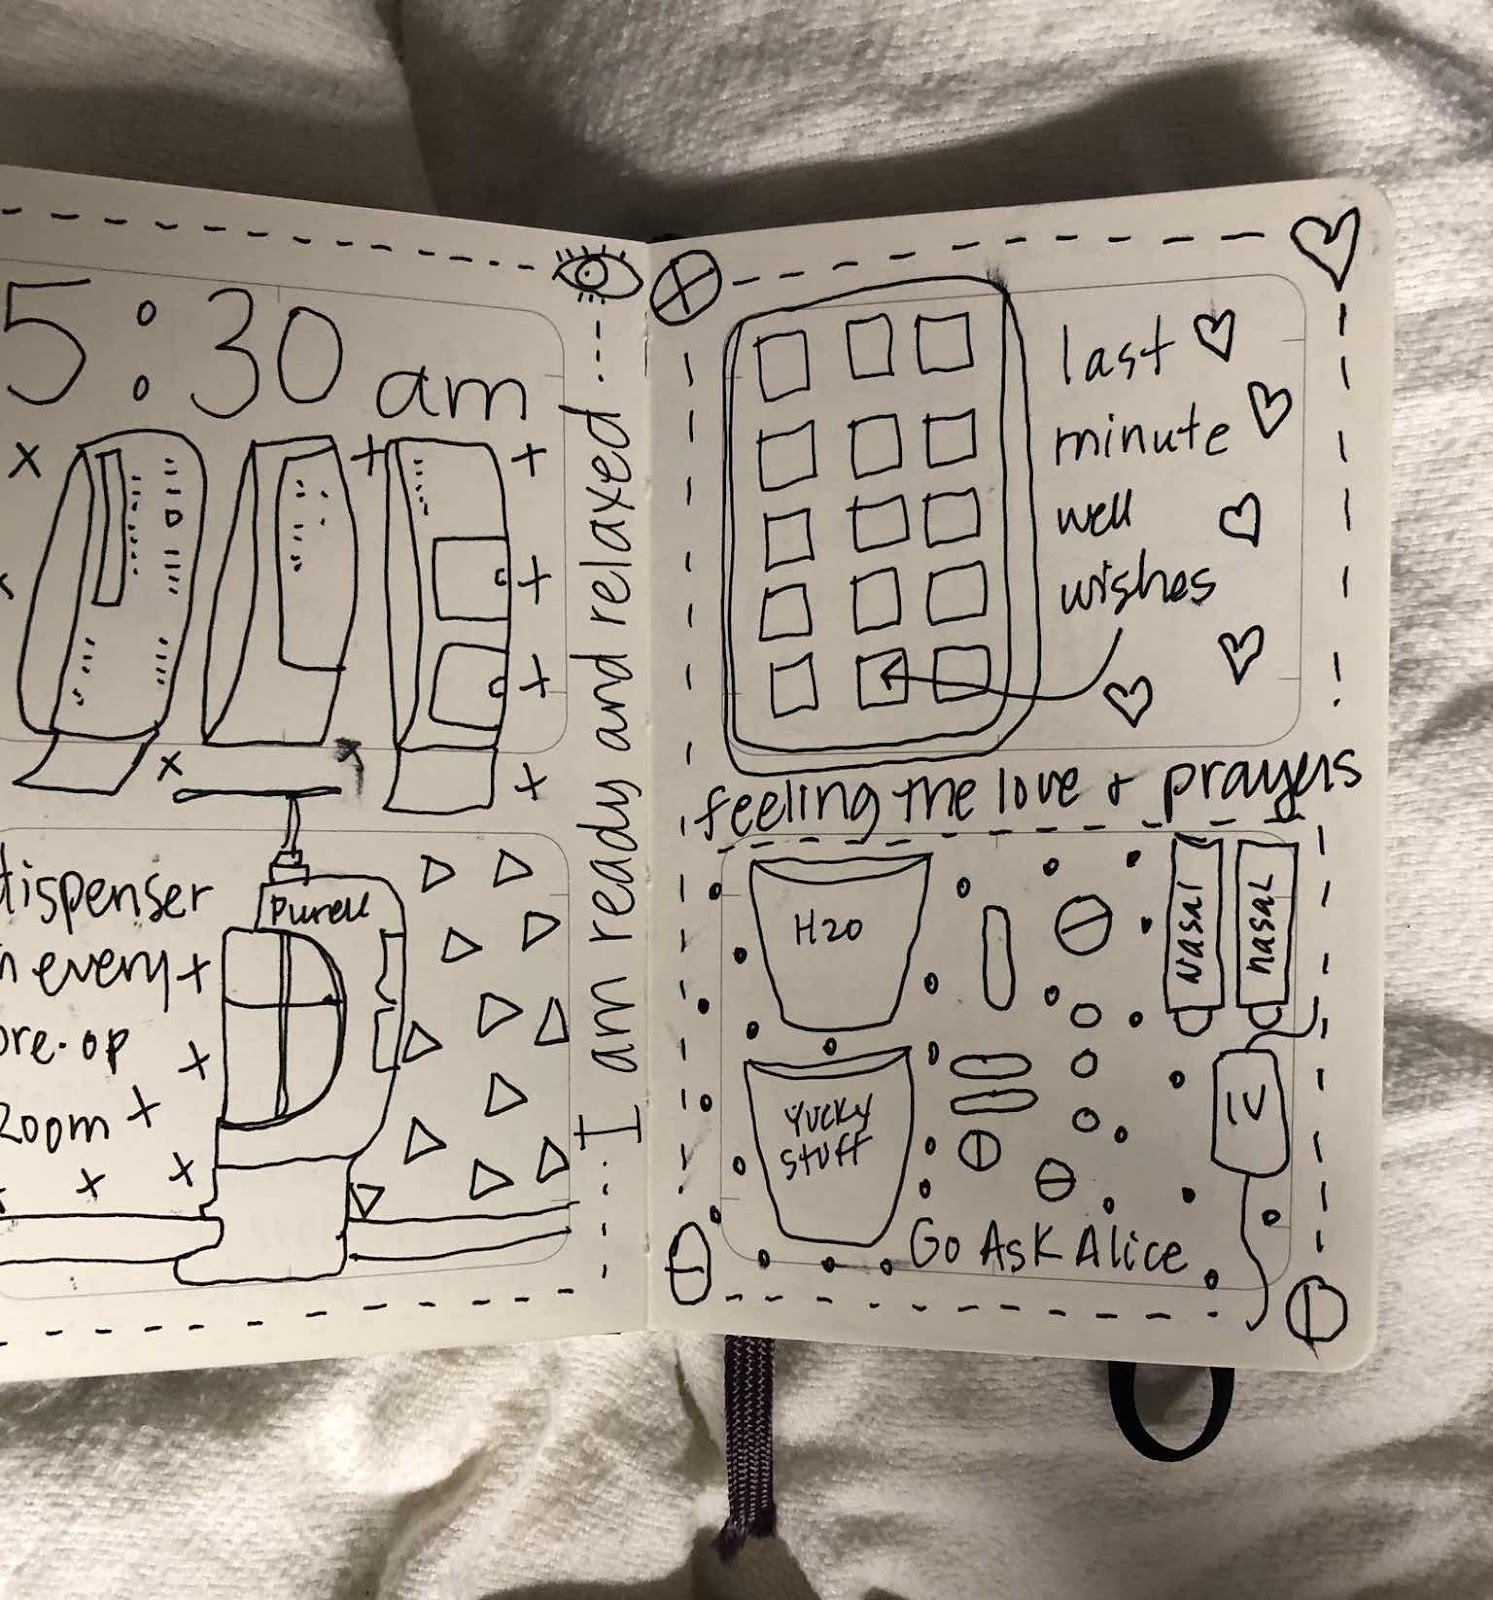 5:30 am
dispenser
every
pre-op
Room
Purell
I am ready and relaxed...
last
minute
well
wishes
feeling the love + prayers
H20
Yucky
Stuff
Nasal
nasal
IV
Go Ask Alice